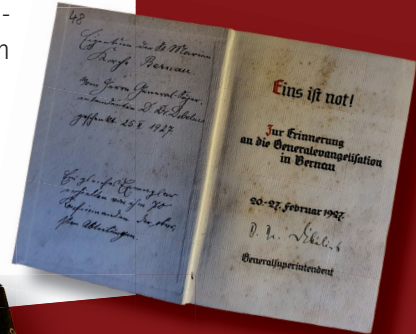 48
Eigentum der St Marien
Kirche Bernau
vom Herrn General-Super-
intendenten D. Dr. Dibelius
geschenkt 1927
Ein gleiches Exemplar
erhielten
Eins ist not!
Zur Erinnerung
an die Generalevangelisation
in Bernau
20.-27. Februar 1927.
D. Dr. Dibelius
Generalsuperintendent